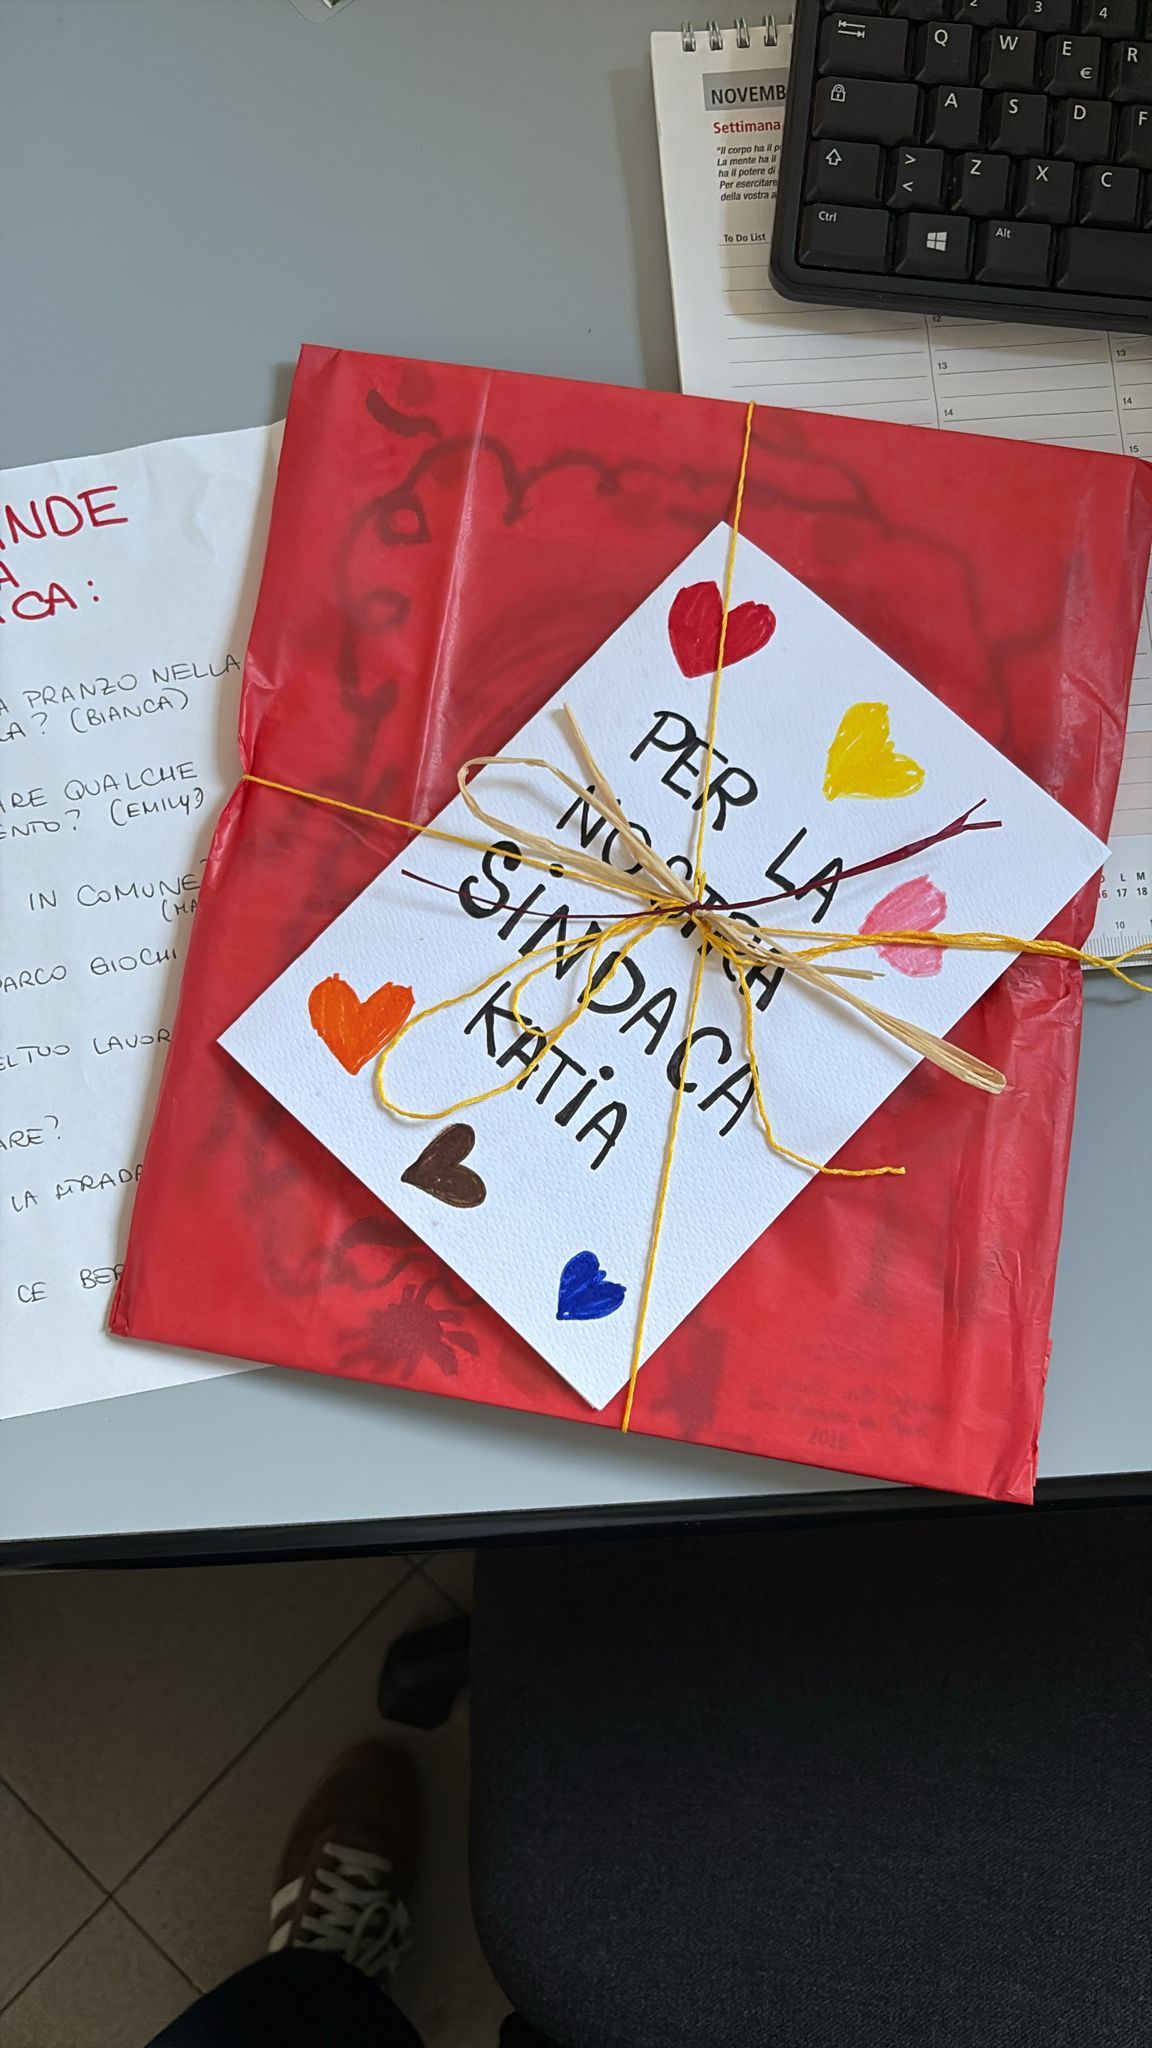 NOVEMB
Settimana
"Il corpo ha il p
La mente ha il
ha il potere di
Per esercitare
della vostra a
To Do List
12
13
14
13
14
15
L M
16 17 18
10
2 3 4
Q W E R
€
A S D F
> < Z X C
Ctrl Alt
INDE
A
CA:
A PRANZO NELLA
LA? (BIANCA)
ARE QUALCHE
ENTO? (EMILY)
IN COMUNE
(MA
PARCO GIOCHI
EL TUO LAVOR
ARE?
LA STRADA
CE BER
PER LA
NOSTRA
SINDACA
KATIA